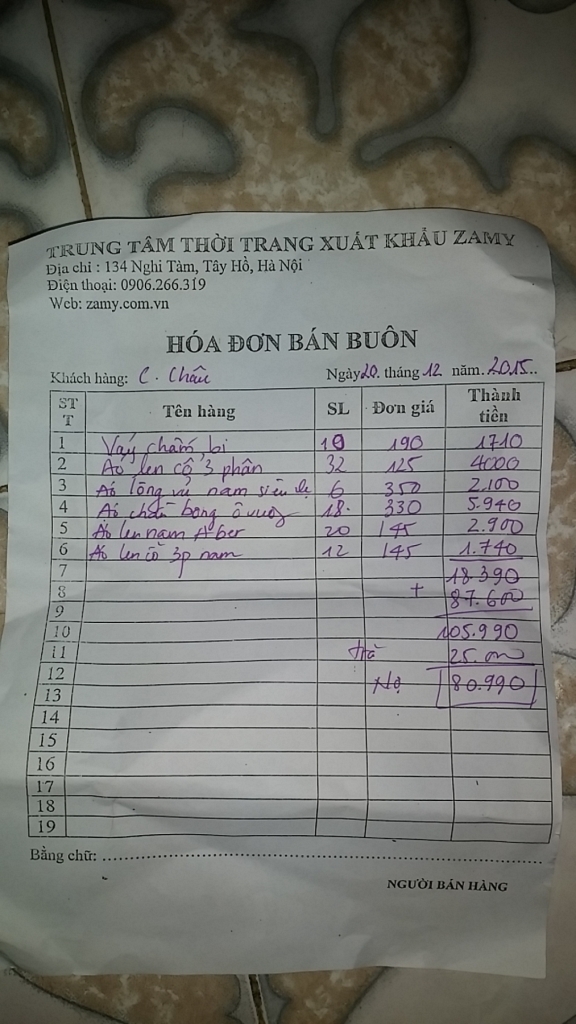 TRUNG TÂM THỜI TRANG XUẤT KHẨU ZAMY
Địa chỉ : 134 Nghi Tàm, Tây Hồ, Hà Nội
Điện thoại: 0906.266.319
Web: zamy.com.vn
HÓA ĐƠN BÁN BUÔN
Khách hàng: C. Châu Ngày 20. tháng 12 năm. 2015..
STT Tên hàng SL Đơn giá Thành tiền
1 Váy chấm bi 190 1710
2 Áo len cổ 3 phân 32 125 4000
3 Áo lông vũ nam siêu 6 350 2.100
4 Áo bông ô vuông 18. 330 5.940
5 Áo len nam Aber 20 145 2.900
6 Áo len cổ 3p nam 12 145 1.740
7 18.390
8 + 87.600
9
10 105.990
11 Trả 25.000
12 Nợ 80.990
13
14
15
16
17
18
19
Bằng chữ: ..............................................................
NGƯỜI BÁN HÀNG